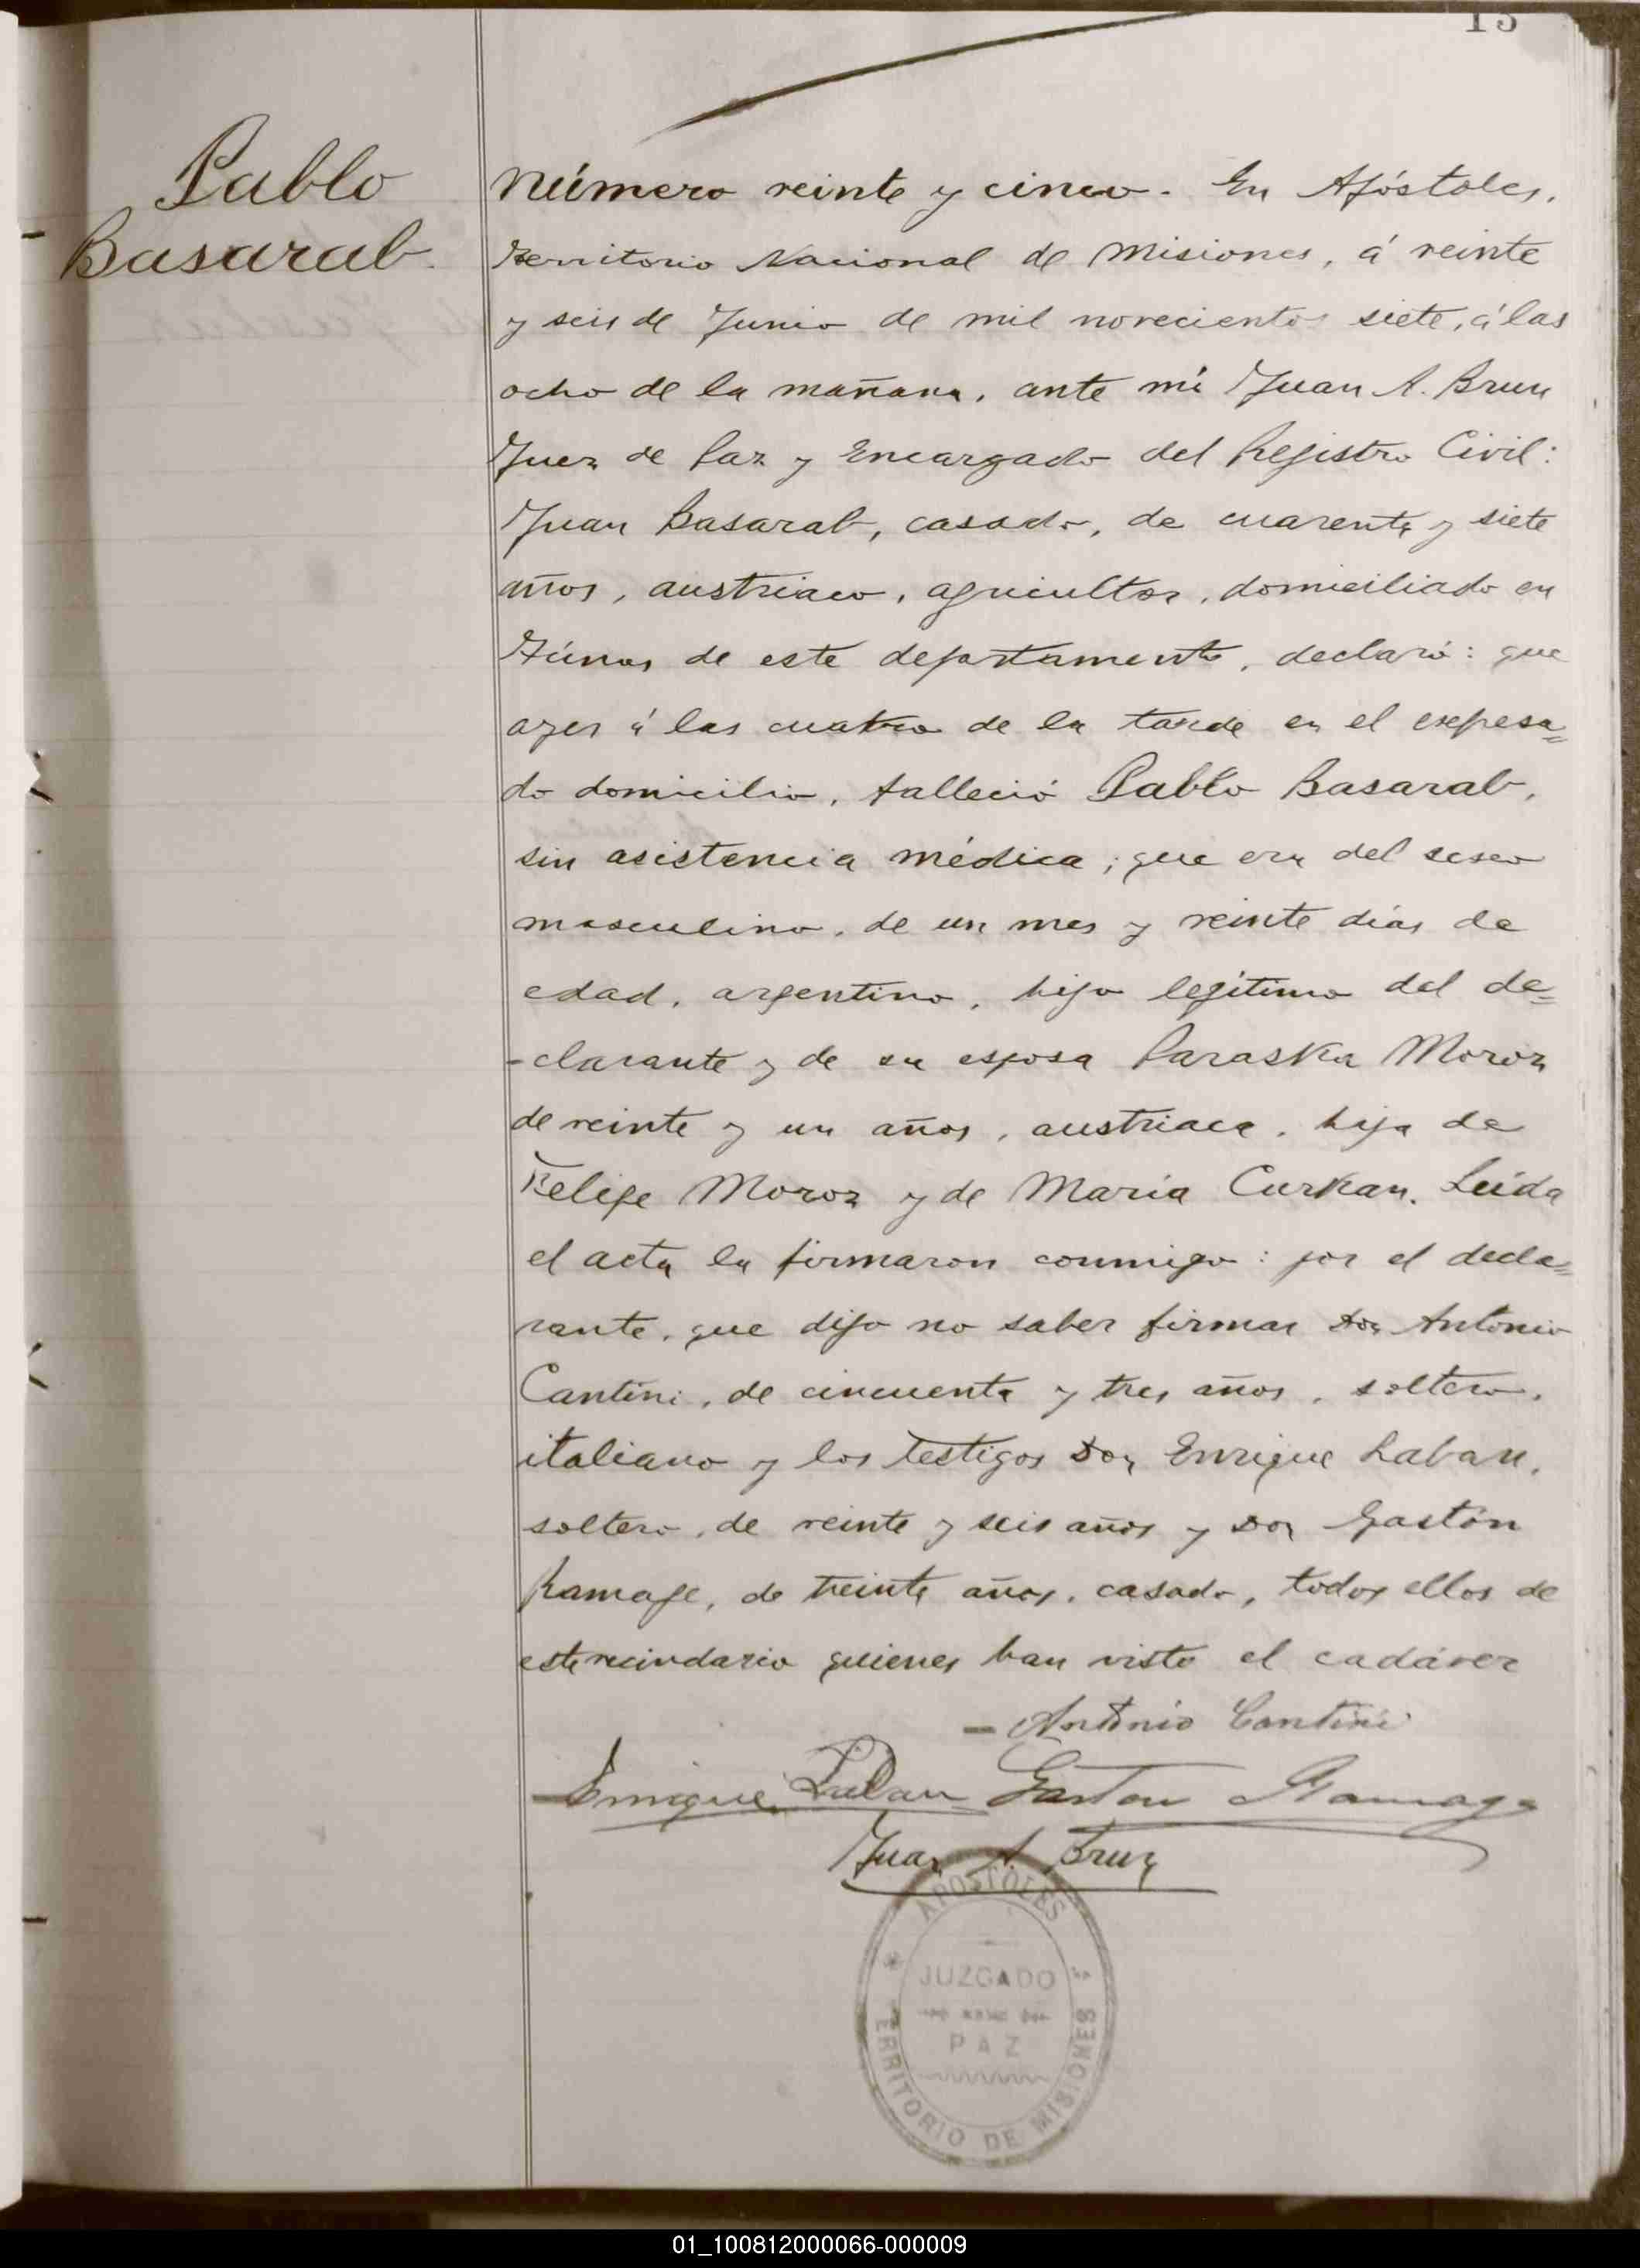 13
Pablo
Basarab.
Número veinte y cinco. En Apóstoles,
Territorio Nacional de Misiones, á veinte
y seis de Junio de mil novecientos siete, á las
ocho de la mañana, ante mí Juan A. Brun
Juez de Paz y Encargado del Registro Civil:
Juan Basarab, casado, de cuarenta y siete
años, austriaco, agricultor, domiciliado en
de este departamento, declaró: que
ayer á las cuatro de la tarde en el expresa=
do domicilio, falleció Pablo Basarab,
sin asistencia médica; que era del sexo
masculino, de un mes y veinte días de
edad, argentino, hijo legítimo del de=
-clarante y de su esposa Paraska Moroz
de veinte y un años, austriaca, hija de
Felipe Moroz y de María Curkan. Leída
el acta la firmaron conmigo: por el decla=
rante, que dijo no saber firmar Don Antonio
Cantini, de cincuenta y tres años, soltero,
italiano y los testigos Don Enrique Laban,
soltero, de veinte y seis años y Don Gastón
Ramage, de treinta años, casado, todos ellos de
este vecindario quienes han visto el cadáver
- Antonio Cantini
Enrique Laban Gaston Ramage
Juan A. Brun
APOSTOLES
JUZGADO
DE
PAZ
TERRITORIO DE MISIONES
01_100812000066-000009